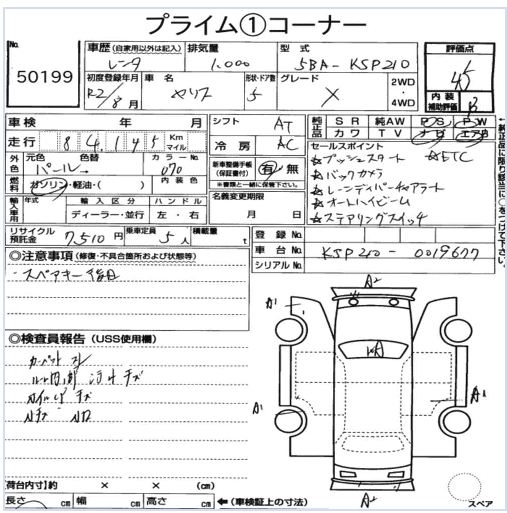 プライム①コーナー
No.
50199
車歴 (自家用以外は記入)
レンタ
排気量
1,000
型式
5BA-KSP210
評価点
初度登録年月
R2/8月
車名
ヤリス
形状・ドア数
5
グレード
X
2WD
・
4WD
内装
補助評価
B
車検 年 月
走行 84,145 Km
マイル
シフト
AT
冷房
AC
純正品
SR 純AW PS PW
カワ TV ナビ エアB
セールスポイント
☆プッシュスタート ☆ETC
☆バックカメラ
☆レーンディパーチャアラート
☆オートハイビーム
☆ステアリングスイッチ
外色
元色 色替
パール
カラーNo.
070
燃料
ガソリン・軽油・( )
内装色
新車整備手帳
(保証書付)
有・無
※書類と一緒に保管下さい。
輸入車用
年式
輸入区分
ディーラー・並行
ハンドル
左・右
名義変更期限
月 日
リサイクル
預託金
7,510円
乗車定員
5人
積載量
t
登録No.
車台No.
KSP210-0019677
シリアルNo.
◎注意事項 (修復・不具合箇所および状態等)
・スペアキー後日
◎検査員報告 (USS使用欄)
A2
A1
A2
スペア
【荷台内寸】約 × × (cm)
長さ cm 幅 cm 高さ cm ←(車検証上の寸法)